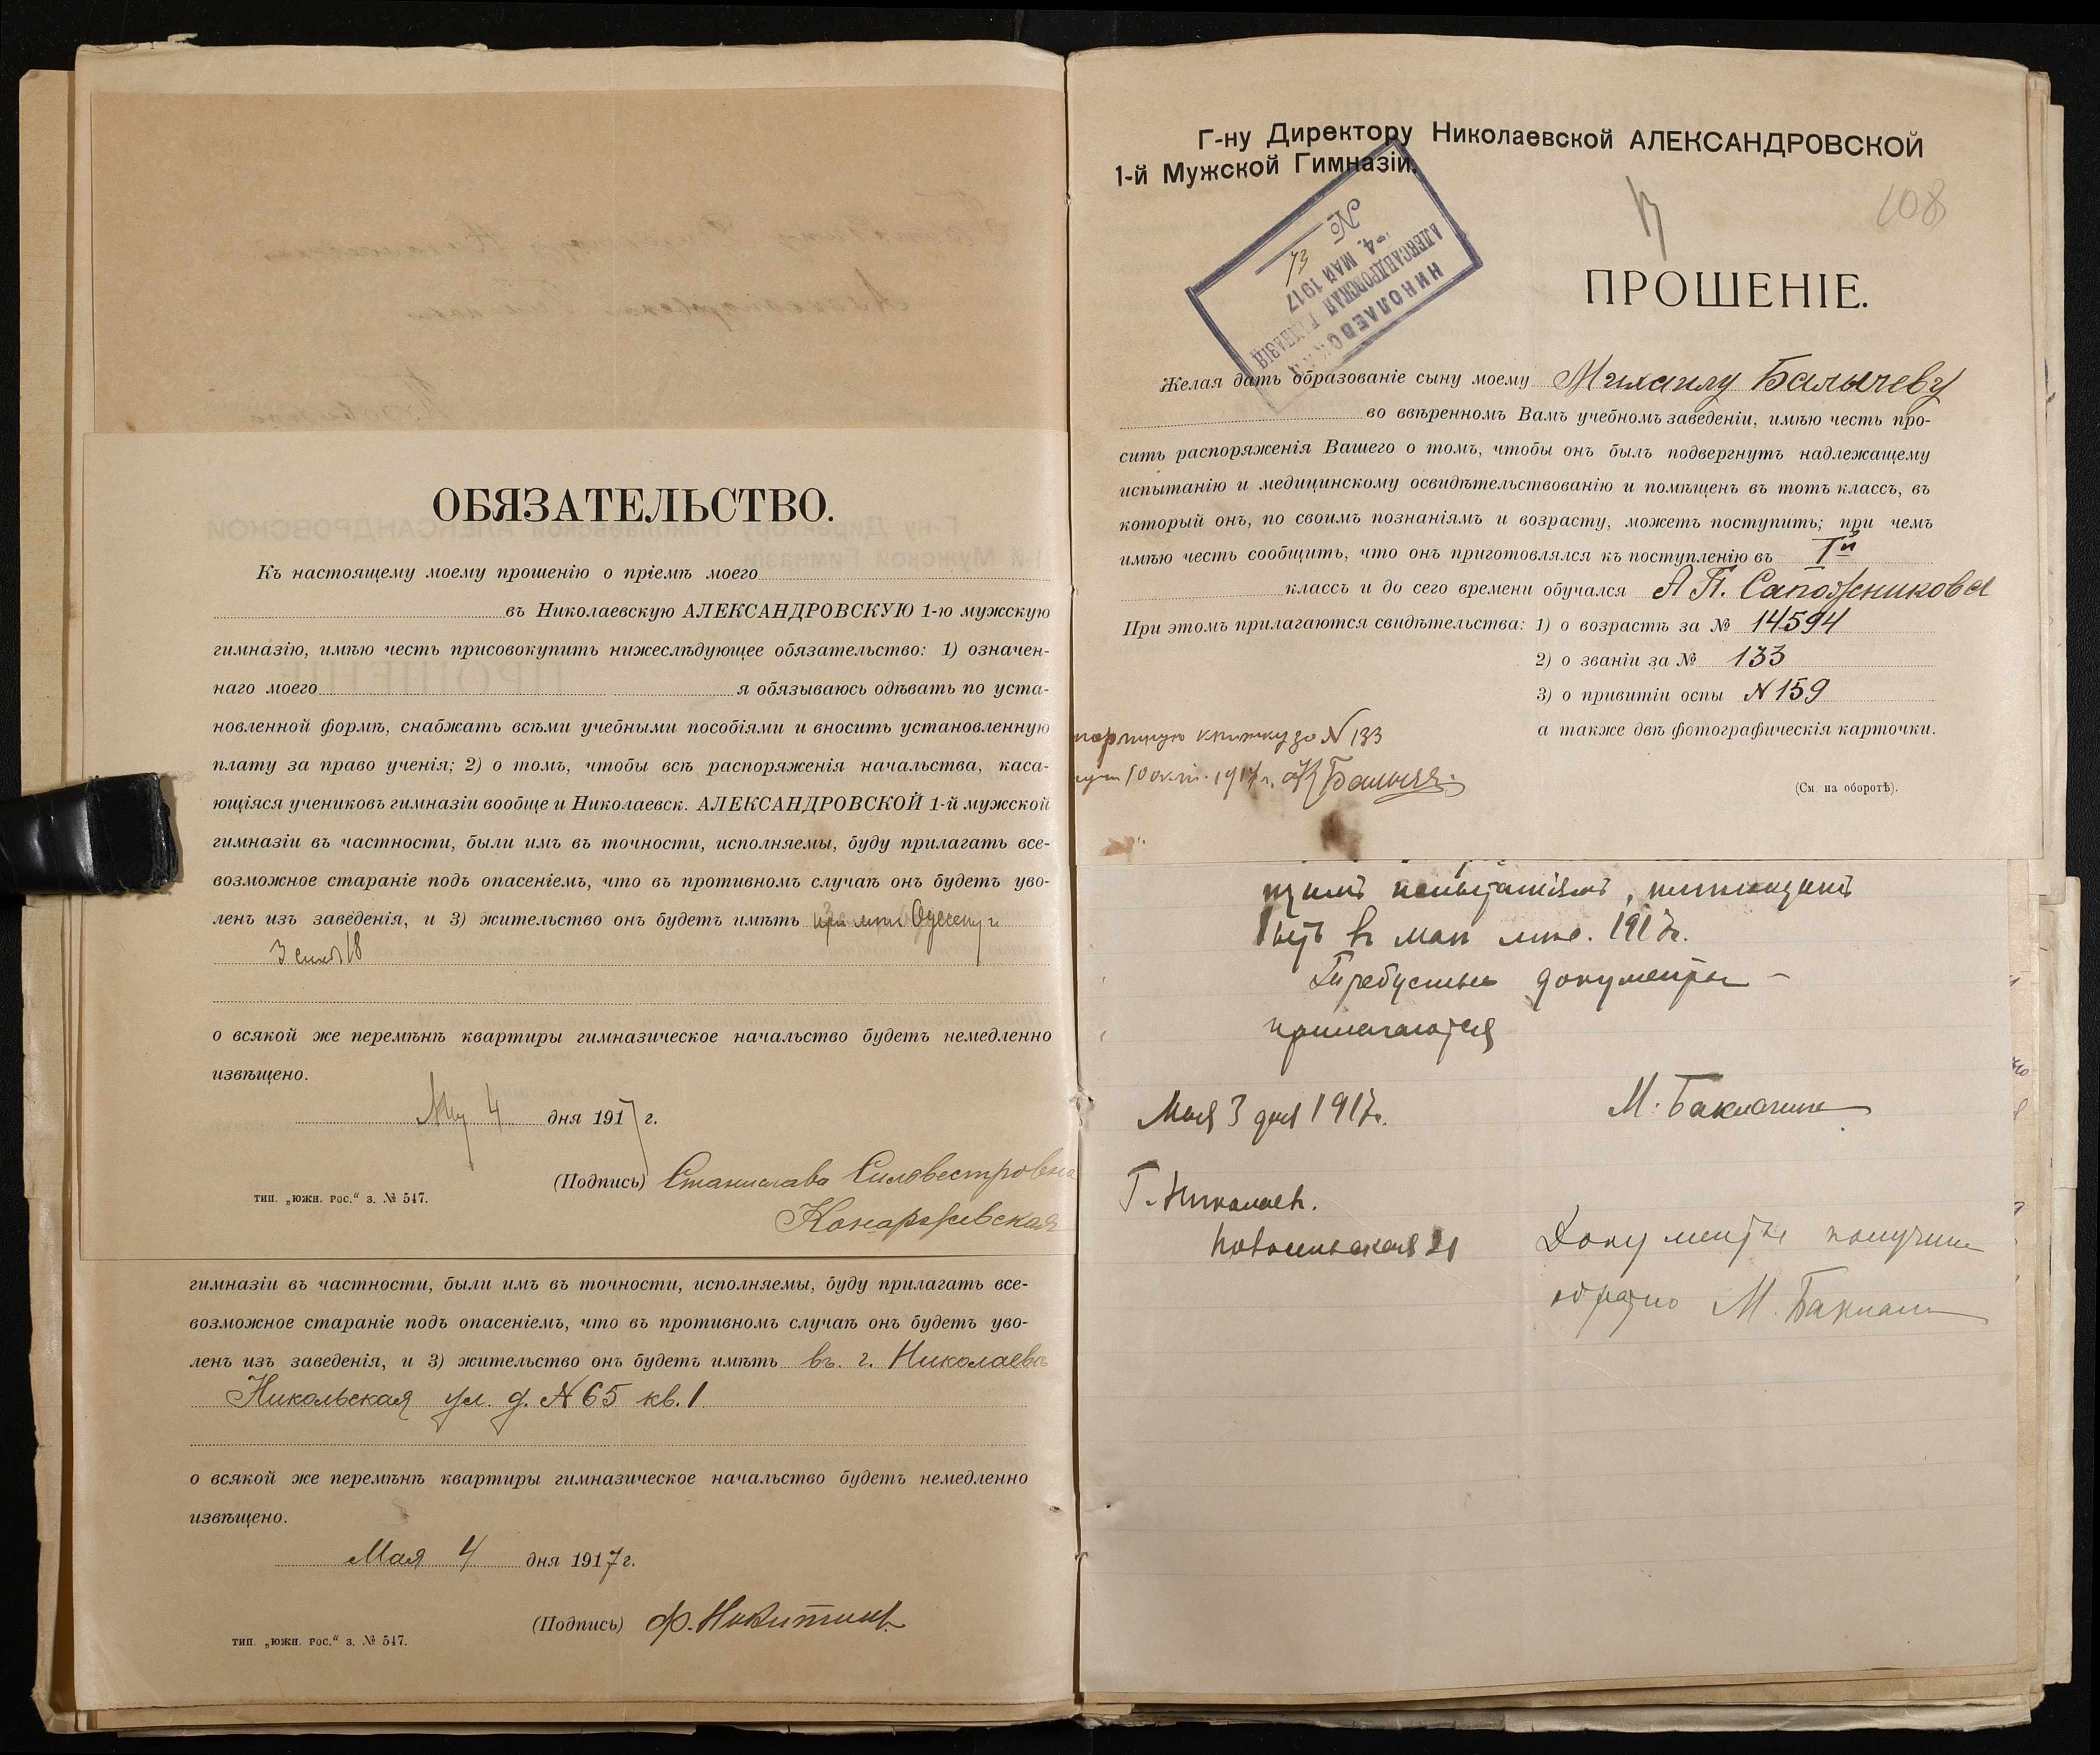 ОБЯЗАТЕЛЬСТВО.
Къ настоящему моему прошенію о пріемѣ моего
въ Николаевскую АЛЕКСАНДРОВСКУЮ 1-ю мужскую
гимназію, имѣю честь присовокупить нижеслѣдующее обязательство: 1) означен-
наго моего я обязываюсь одѣвать по уста-
новленной формѣ, снабжать всѣми учебными пособіями и вносить установленную
плату за право ученія; 2) о томъ, чтобы всѣ распоряженія начальства, каса-
ющіяся учениковъ гимназіи вообще и Николаевск. АЛЕКСАНДРОВСКОЙ 1-й мужской
гимназіи въ частности, были имъ въ точности, исполняемы, буду прилагать все-
возможное стараніе подъ опасеніемъ, что въ противномъ случаѣ онъ будетъ уво-
ленъ изъ заведенія, и 3) жительство онъ будетъ имѣть
о всякой же перемѣнѣ квартиры гимназическое начальство будетъ немедленно
извѣщено.
4 дня 1917 г.
(Подпись) Станислава Сильвестровна
тип. „южн. рос.“ з. № 547.
гимназіи въ частности, были имъ въ точности, исполняемы, буду прилагать все-
возможное стараніе подъ опасеніемъ, что въ противномъ случаѣ онъ будетъ уво-
ленъ изъ заведенія, и 3) жительство онъ будетъ имѣть въ. г. Николаевѣ
Никольская ул. д. N 65 кв. 1
о всякой же перемѣнѣ квартиры гимназическое начальство будетъ немедленно
извѣщено.
Мая 4 дня 1917 г.
(Подпись) Ф. Никитинъ
тип. „южн. рос.“ з. № 547.
Г-ну Директору Николаевской АЛЕКСАНДРОВСКОЙ
1-й Мужской Гимназіи.
108
НИКОЛАЕВСКАЯ
АЛЕКСАНДРОВСКАЯ ГИМНАЗІЯ
-4. МАЙ 1917
№ 73
ПРОШЕНІЕ.
Желая дать образованіе сыну моему Михаилу Балычеву
во ввѣренномъ Вамъ учебномъ заведеніи, имѣю честь про-
сить распоряженія Вашего о томъ, чтобы онъ былъ подвергнутъ надлежащему
испытанію и медицинскому освидѣтельствованію и помѣщенъ въ тотъ классъ, въ
который онъ, по своимъ познаніямъ и возрасту, можетъ поступить; при чемъ
имѣю честь сообщить, что онъ приготовлялся къ поступленію въ Iй
классъ и до сего времени обучался А. П. Сапожникова
При этомъ прилагаются свидѣтельства: 1) о возрастѣ за № 14594
2) о званіи за № 133
3) о привитіи оспы N 159
а также двѣ фотографическія карточки.
книжку за N 133
1917 г.
(См. на оборотѣ).
испытаніямъ,
въ маѣ 1917г.
документы
прилагаются
Мая 3 дня 1917г.
Г. Николаевъ.
21
Документы получилъ
обратно М.